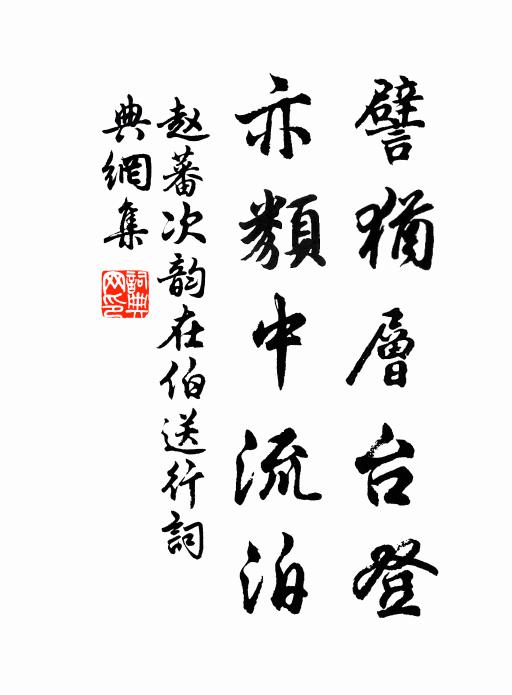 譬猶層台登
亦類中流泊
赵蕃次韵在伯送行詞
典網集
詞典网印